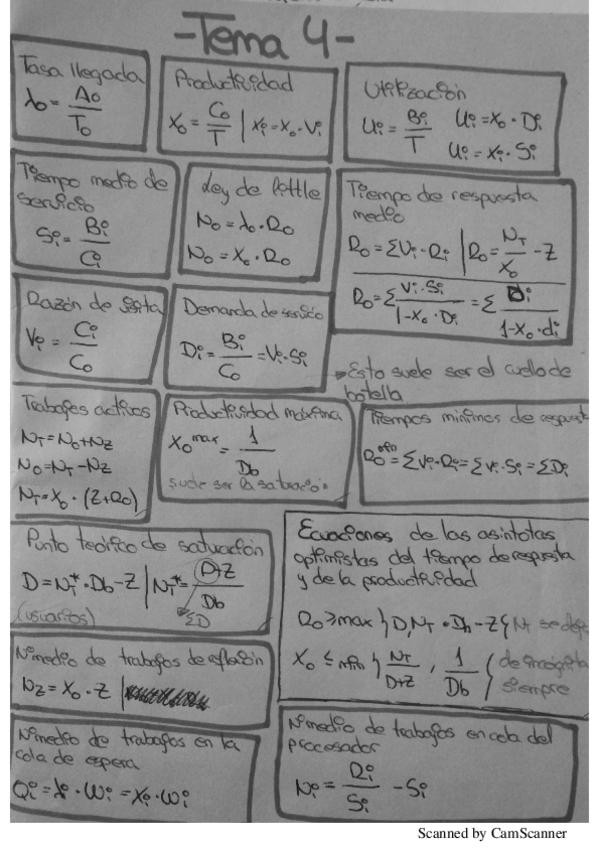 -Tema 4-
Tasa llegada
λo = Ao / To
Productividad
Xo = Co / T | Xi = Xo · Vi
Utilización
Ui = Bi / T Ui = Xo · Di
Ui = Xi · Si
Tiempo medio de
servicio
Si = Bi / Ci
Ley de Little
No = λo · Ro
No = Xo · Ro
Tiempo de respuesta
medio
Ro = ΣVi · Ri | Ro = NT / Xo - Z
Ro = Σ Vi · Si / 1-Xo · Di = Σ Di / 1-Xo · di
Razón de visita
Vi = Ci / Co
Demanda de servicio
Di = Bi / Co = Vi · Si
Esto suele ser el cuello de
botella
Trabajos activos
NT = No + NZ
No = NT - NZ
NT = Xo · (Z + Ro)
Productividad máxima
Xo max = 1 / Db
suele ser la saturación
Tiempos mínimos de respuest
Ro min = ΣVi · Ri = ΣVi · Si = ΣDi
Punto teórico de saturación
D = NT* · Db - Z | NT* = D+Z / Db
(usuarios) ΣD
Ecuaciones de las asíntotas
optimistas del tiempo de respuesta
y de la productividad
Ro ≥ max { D, NT · Db - Z { NT se deja
Xo ≤ min { NT / D+Z , 1 / Db { de incógnita
siempre
Nº medio de trabajos de reflexión
NZ = Xo · Z |
Nº medio de trabajos en la
cola de espera
Qi = λi · Wi = Xi · Wi
Nº medio de trabajos en cola del
procesador
Ni = Ri / Si - Si
Scanned by CamScanner